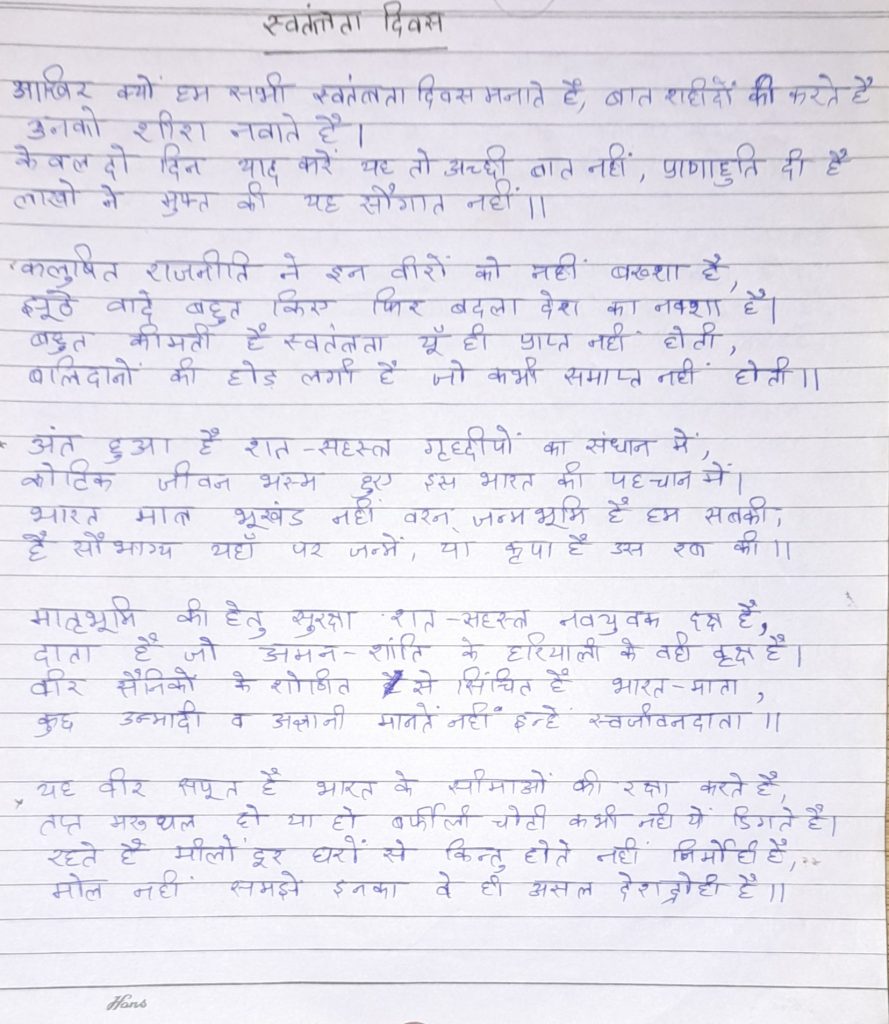 स्वतंत्रता दिवस
आखिर क्यों हम सभी स्वतंत्रता दिवस मनाते हैं, बात शहीदों की करते हैं
उनको शीश नवाते हैं।
केवल दो दिन याद करें यह तो अच्छी बात नहीं, प्राणाहुति दी है
लाखो ने मुफ्त की यह सौगात नहीं॥
कलुषित राजनीति ने इन वीरों को नहीं बख्शा है,
झूठे वादे बहुत किए फिर बदला देश का नक्शा है।
बहुत कीमती है स्वतंत्रता यूँ ही प्राप्त नहीं होती,
बलिदानों की होड़ लगी है जो कभी समाप्त नहीं होती॥
अंत हुआ है शत-सहस्त्र गृहदीपों का संधान में,
कोटिक जीवन भस्म हुए इस भारत की पहचान में।
भारत मात्र भूखंड नहीं वरन् जन्मभूमि है हम सबकी,
है सौभाग्य यहाँ पर जन्में, या कृपा है उस रब की॥
मातृभूमि की हेतु सुरक्षा शत-सहस्त्र नवयुवक दक्ष हैं,
दाता हैं जो अमन-शांति के हरियाली के वही वृक्ष हैं।
वीर सैनिकों के शोणित से सिंचित है भारत-माता,
कुछ उन्मादी व अज्ञानी मानतें नहीं इन्हें स्वजीवनदाता॥
यह वीर सपूत हैं भारत के सीमाओं की रक्षा करते हैं,
तप्त मरुथल हो या हो बर्फीली चोटी कभी नही ये डिगते हैं।
रहते हैं मीलों दूर घरों से किन्तु होते नहीं निर्मोही हैं,
मोल नहीं समझे इनका वे ही असल देशद्रोही हैं॥
Hans